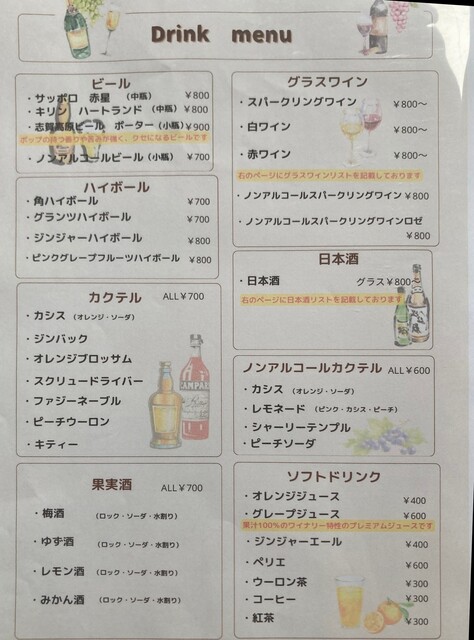 Drink menu
ビール
・サッポロ 赤星 （中瓶） ￥800
・キリン ハートランド （中瓶）￥800
・志賀高原ビール ポーター（小瓶）￥900
ホップの持つ香りや苦みが強く、クセになるビールです
・ノンアルコールビール（小瓶） ￥700
ハイボール
・角ハイボール ￥700
・グランツハイボール ￥700
・ジンジャーハイボール ￥800
・ピンクグレープフルーツハイボール ￥800
カクテル ALL￥700
・カシス （オレンジ・ソーダ）
・ジンバック
・オレンジブロッサム
・スクリュードライバー
・ファジーネーブル
・ピーチウーロン
・キティー
CAMPARI
果実酒 ALL￥700
・梅酒 （ロック・ソーダ・水割り）
・ゆず酒 （ロック・ソーダ・水割り）
・レモン酒 （ロック・ソーダ・水割り）
・みかん酒 （ロック・ソーダ・水割り）
グラスワイン
・スパークリングワイン ￥800～
・白ワイン ￥800～
・赤ワイン ￥800～
右のページにグラスワインリストを記載しております
・ノンアルコールスパークリングワイン ￥800
・ノンアルコールスパークリングワインロゼ
￥800
日本酒
・日本酒 グラス￥800～
右のページに日本酒リストを記載しております
ノンアルコールカクテル ALL￥600
・カシス （オレンジ・ソーダ）
・レモネード （ピンク・カシス・ピーチ）
・シャーリーテンプル
・ピーチソーダ
ソフトドリンク
・オレンジジュース ￥400
・グレープジュース ￥600
果汁100%のワイナリー特性のプレミアムジュースです
・ジンジャーエール ￥400
・ペリエ ￥600
・ウーロン茶 ￥300
・コーヒー ￥300
・紅茶 ￥300